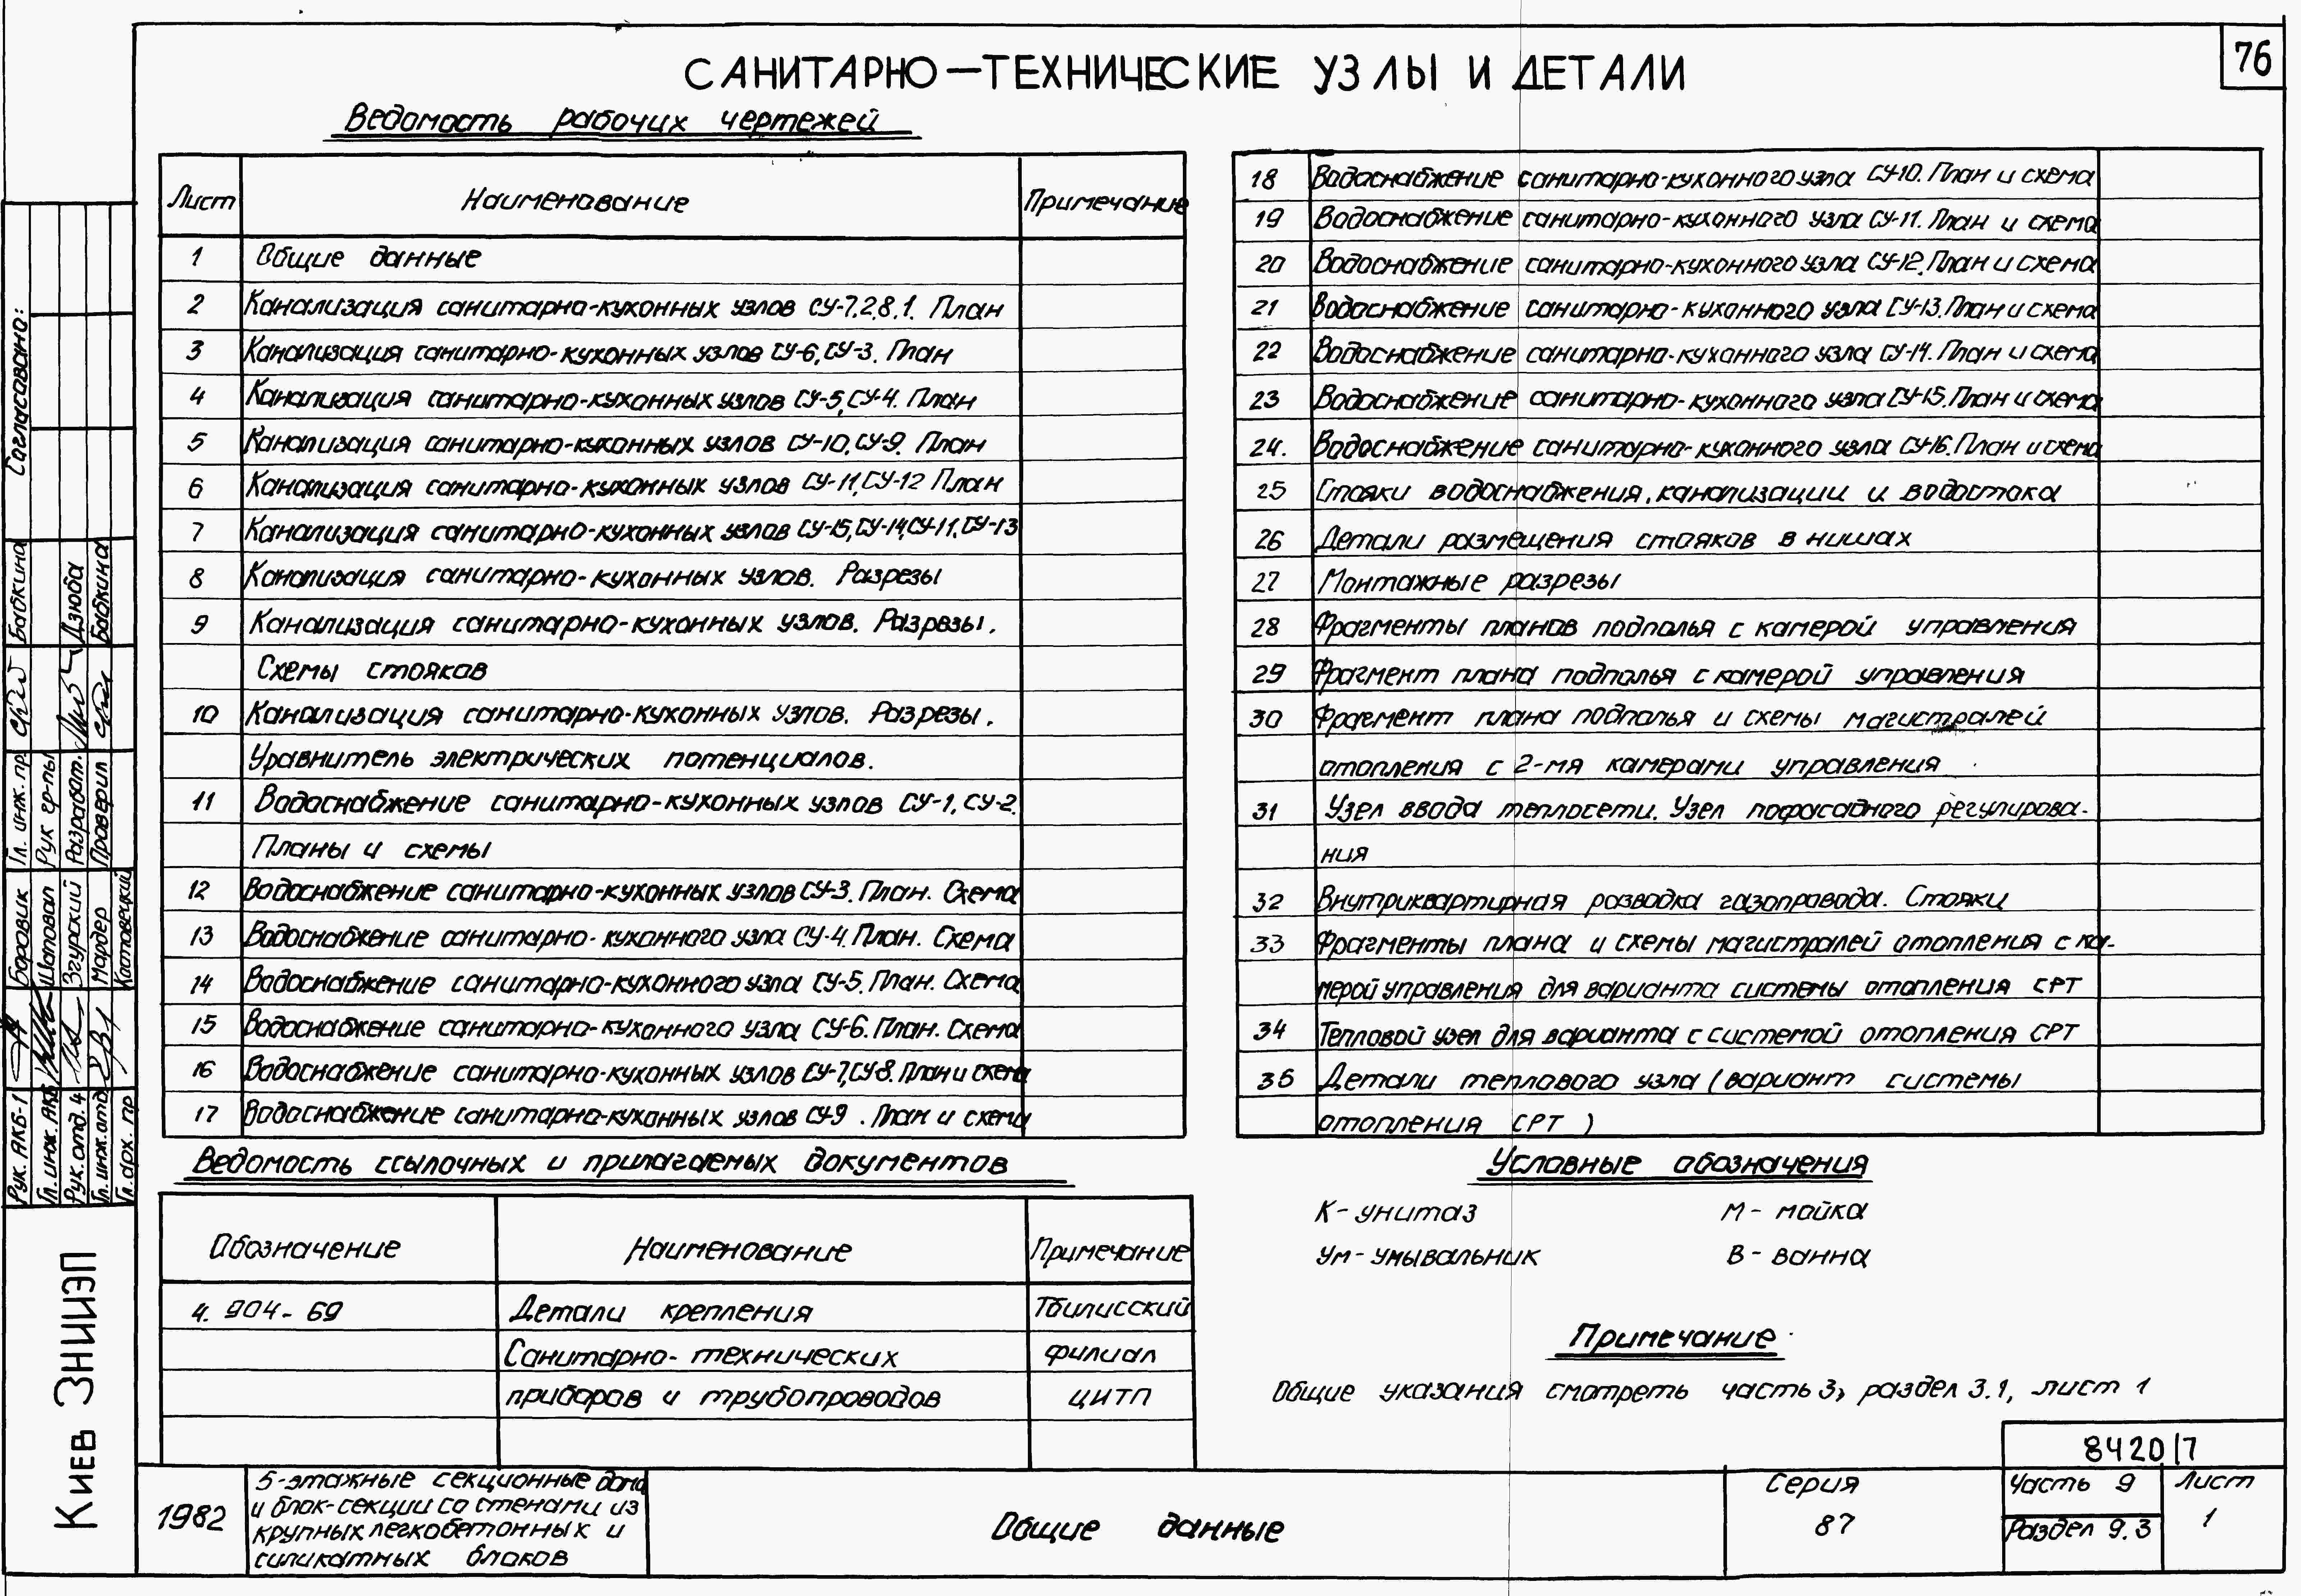 76
САНИТАРНО-ТЕХНИЧЕСКИЕ УЗЛЫ И ДЕТАЛИ
Ведомость рабочих чертежей
Лист Наименование Примечание
1 Общие данные
2 Канализация санитарно-кухонных узлов СУ-7,2,8,1. План
3 Канализация санитарно-кухонных узлов СУ-6, СУ-3. План
4 Канализация санитарно-кухонных узлов СУ-5, СУ-4. План
5 Канализация санитарно-кухонных узлов СУ-10, СУ-9. План
6 Канализация санитарно-кухонных узлов СУ-11, СУ-12 План
7 Канализация санитарно-кухонных узлов СУ-15, СУ-14, СУ-11, СУ-13
8 Канализация санитарно-кухонных узлов. Разрезы
9 Канализация санитарно-кухонных узлов. Разрезы.
Схемы стояков
10 Канализация санитарно-кухонных узлов. Разрезы.
Уравнитель электрических потенциалов.
11 Водоснабжение санитарно-кухонных узлов СУ-1, СУ-2.
Планы и схемы
12 Водоснабжение санитарно-кухонных узлов СУ-3. План. Схема
13 Водоснабжение санитарно-кухонного узла СУ-4. План. Схема
14 Водоснабжение санитарно-кухонного узла СУ-5. План. Схема
15 Водоснабжение санитарно-кухонного узла СУ-6. План. Схема
16 Водоснабжение санитарно-кухонных узлов СУ-7, СУ-8. План и схема
17 Водоснабжение санитарно-кухонных узлов СУ-9. План и схемы
18 Водоснабжение санитарно-кухонного узла СУ-10. План и схема
19 Водоснабжение санитарно-кухонного узла СУ-11. План и схема
20 Водоснабжение санитарно-кухонного узла СУ-12. План и схема
21 Водоснабжение санитарно-кухонного узла СУ-13. План и схема
22 Водоснабжение санитарно-кухонного узла СУ-14. План и схема
23 Водоснабжение санитарно-кухонного узла СУ-15. План и схема
24. Водоснабжение санитарно-кухонного узла СУ-16. План и схема
25 Стояки водоснабжения, канализации и водостока
26 Детали размещения стояков в нишах
27 Монтажные разрезы
28 Фрагменты планов подполья с камерой управления
29 Фрагмент плана подполья с камерой управления
30 Фрагмент плана подполья и схемы магистралей
отопления с 2-мя камерами управления
31 Узел ввода теплосети. Узел пофасадного регулирова-
ния
32 Внутриквартирная разводка газопровода. Стояки
33 Фрагменты плана и схемы магистралей отопления с ка-
мерой управления для варианта системы отопления СРТ
34 Тепловой узел для варианта с системой отопления СРТ
36 Детали теплового узла (вариант системы
отопления СРТ)
Ведомость ссылочных и прилагаемых документов
Обозначение Наименование Примечание
4. 904-69 Детали крепления Тбилисский
Санитарно-технических филиал
приборов и трубопроводов ЦИТП
Условные обозначения
К-унитаз М-мойка
Ум-умывальник В-ванна
Примечание
Общие указания смотреть часть 3, раздел 3.1, лист 1
8420/7
1982
5-этажные секционные дома
и блок-секции со стенами из
крупных легкобетонных и
силикатных блоков
Общие данные
Серия
87
Часть 9
Раздел 9.3
Лист
1
Согласовано:
Рук. АКБ-1 Боровик Гл. инж. пр. Бабкина
Гл. инж. АКБ Шаповал Рук гр-пы
Рук. отд. 4 Згурский Разработ. Дзюба
Гл. инж. отд Мардер Проверил Бабкина
Гл. арх. пр
Киев ЗНИИЭП